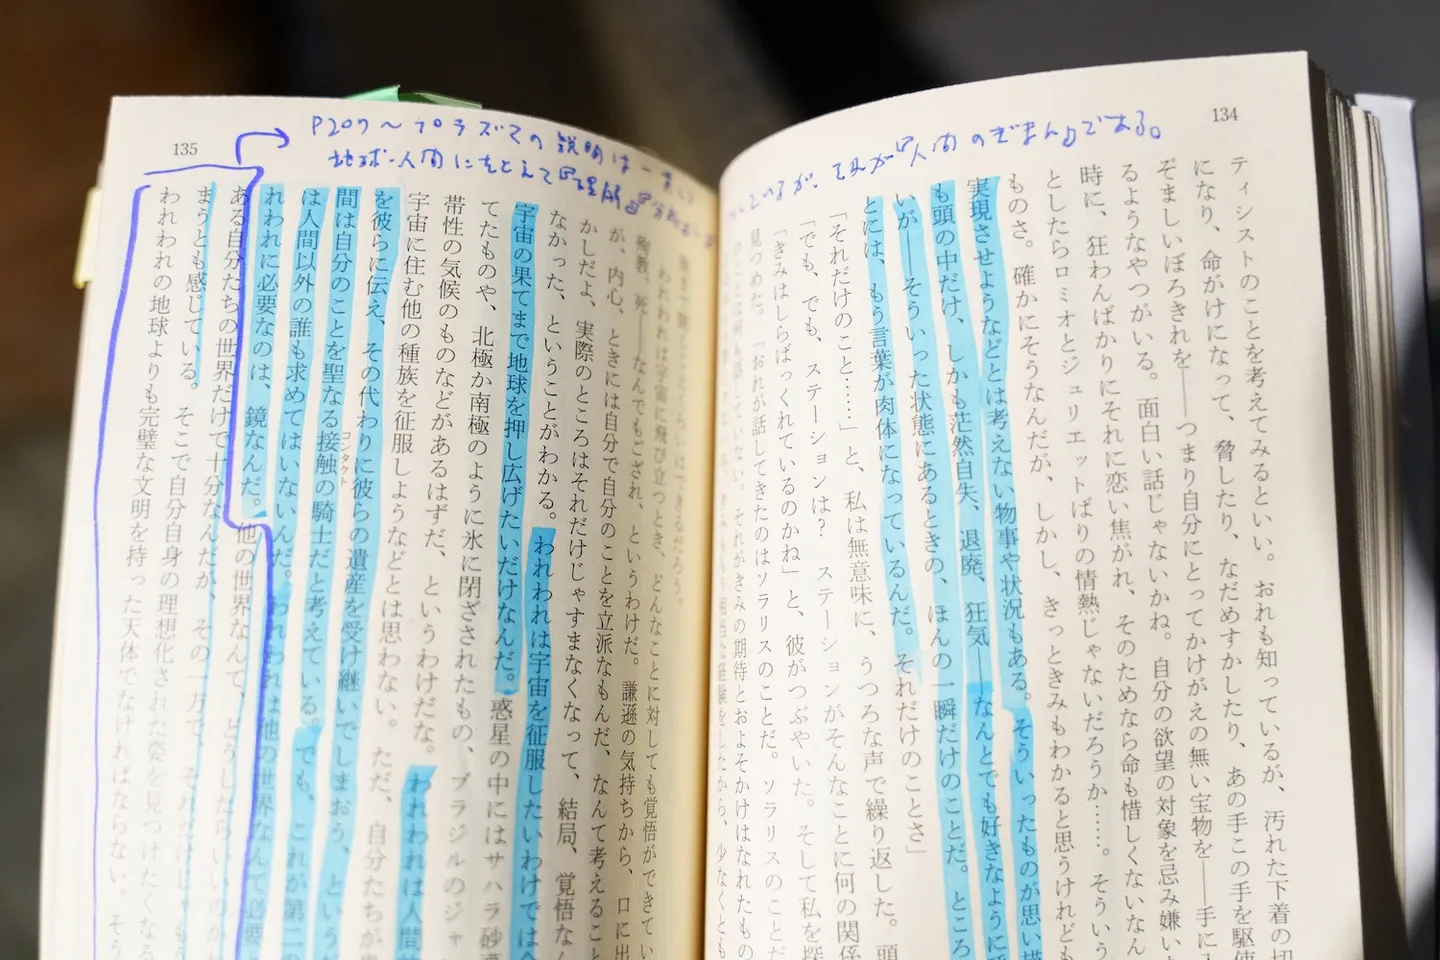 134
ティシストのことを考えてみるといい。おれも知っているが、汚れた下着の切
になり、命がけになって、脅したり、なだめすかしたり、あの手この手を駆使
ぞましいぼろきれを――つまり自分にとってかけがえの無い宝物を――手に入
るようなやつがいる。面白い話じゃないかね。自分の欲望の対象を忌み嫌い
時に、狂わんばかりにそれに恋い焦がれ、そのためなら命も惜しくないなん
としたらロミオとジュリエットばりの情熱じゃないだろうか……。そういう
ものさ。確かにそうなんだが、しかし、きっときみもわかると思うけれども
実現させようなどとは考えない物事や状況もある。そういったものが思い描
も頭の中だけ、しかも茫然自失、退廃、狂気――なんとでも好きなように呼
いが――そういった状態にあるときの、ほんの一瞬だけのことだ。ところ
とには、もう言葉が肉体になっているんだ。それだけのことさ」
「それだけのこと……」と、私は無意味に、うつろな声で繰り返した。頭
「でも、でも、ステーションは？　ステーションがそんなことに何の関係
「きみはしらばっくれているのかね」と、彼がつぶやいた。そして私を探
見つめた。「おれが話してきたのはソラリスのことだ。ソラリスのことだ
それがきみの期待とおよそかけはなれたもの
ているが、それが『人間のぎまん』である。
135
P207〜プラズマの説明は一貫して
地球・人間にたとえて『理解』『分
われわれは宇宙に飛び立つとき、どんなことに対しても覚悟ができてい
殉教、死――なんでもござれ、というわけだ。謙遜の気持ちから、口に出
が、内心、ときには自分で自分のことを立派なもんだ、なんて考えること
かしだよ、実際のところはそれだけじゃすまなくなって、結局、覚悟なん
なかった、ということがわかる。われわれは宇宙を征服したいわけでは全
宇宙の果てまで地球を押し広げたいだけなんだ。惑星の中にはサハラ砂漠
てたものや、北極か南極のように氷に閉ざされたもの、ブラジルのジャ
帯性の気候のものなどがあるはずだ、というわけだな。われわれは人間
宇宙に住む他の種族を征服しようなどとは思わない。ただ、自分たちが
を彼らに伝え、その代わりに彼らの遺産を受け継いでしまおう、という
間は自分のことを聖なる接触の騎士だと考えている。でも、これが第二の
コンタクト
は人間以外の誰も求めてはいないんだ。われわれは他の世界なんて必要
れわれに必要なのは、鏡なんだ。他の世界なんて、どうしたらいいのか
ある自分たちの世界だけで十分なんだが、その一方で、それだけじゃもう
まうとも感じている。そこで自分自身の理想化された姿を見つけたくなる
われわれの地球よりも完璧な文明を持った天体でなければならない。そう